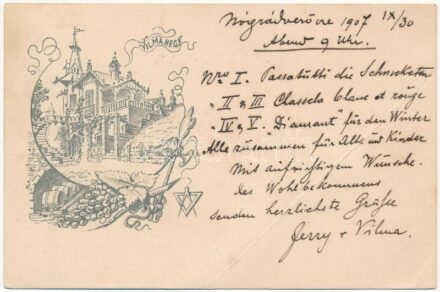 VILMAHEGY
Nógrádverőce 1907 IX/30
Abend 9 Uhr.
Nro I. Passatutti die Schneekaten
" II & III Chassela blanc et rouge
" IV & V. "Diamant" für den Winter
Alle zusammen für Alt und Kinder
Mit aufrichtigem Wunsche
des Wohlbekommens
senden herzlichste Grüße
Jerry & Vilma.